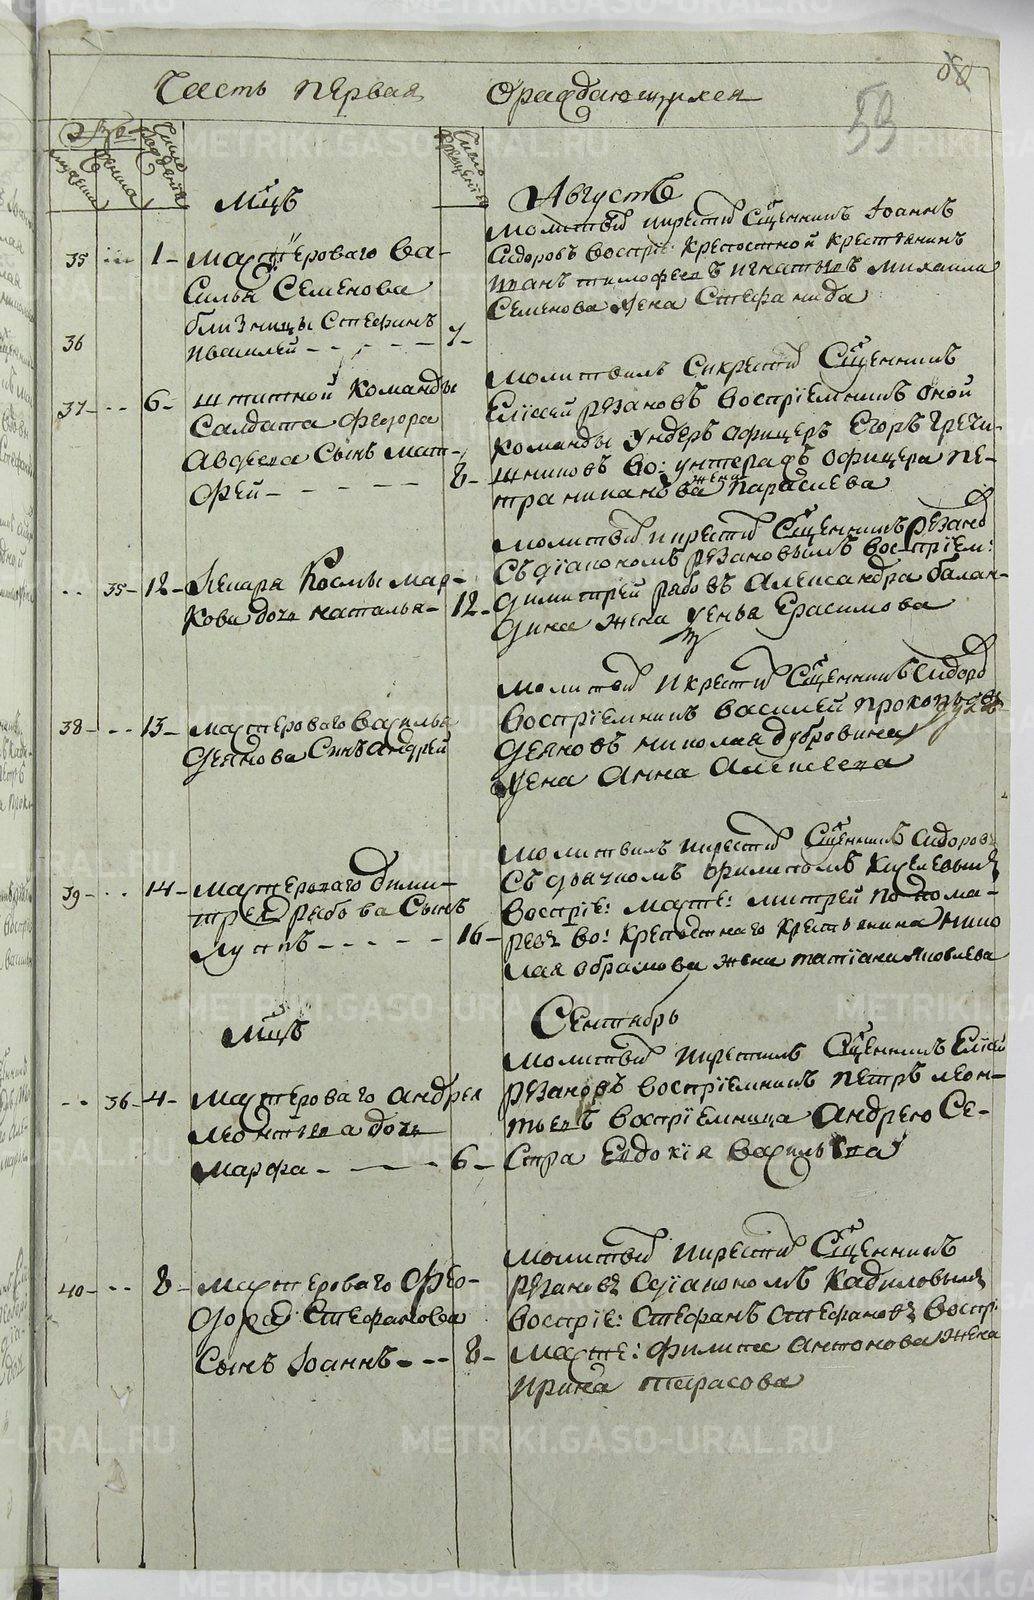 Часть первая о раждающихся
59
Число рождения
Число крещения
Мцъ Августъ
35 1 мастероваго Ва-
силья Семенова
36 близницы Стефанъ
и василей 7
молитвил и крестил Сщенникъ Iоаннъ
Сидоровъ воспрiе: крепостной крестьянинъ
иванъ тимофеевъ игнатьевъ михаила
Семенова жена Стефанида
37 6 штатной команды
Салдата федора
Авдеева Сынъ мат-
фей 8
молитвилъ и крестил Сщенникъ
Елiсей рязановъ воспрiемникъ оной
команды ундеръ офицеръ Егоръ Гречи-
шниковъ во: унтеръ офицера пе-
жена параскева
35 12 Лекаря Космы мар-
кова дочь наталья 12
молитвил и крестил Сщенникъ рязанов
Съ дiакономъ рязановымъ воспрiем:
димитрей рябовъ Александра балан-
дина жена Герасимова
38 13 мастероваго василья
деянова Сынъ андрей
молитвил и крестил Сщенникъ Сидоров
воспрiемникъ василей прокопьевъ
деяновъ николая дубровина
жена Анна Алексеева
39 14 мастероваго дими-
трея рябова Сынъ
лупъ 16
молитвилъ и крестил Сщенникъ Сидоровъ
Съ дьячкомъ филипомъ Киселевымъ
воспрiе: масте: митрей понома-
ревъ во: крепостнаго крестьянина нико
лая абрамова жена татiана Яковлева
Мцъ Сентябрь
36 4 мастероваго андрея
леонтьева дочь
марфа 6
молитвил и крестилъ Сщенникъ Елiсей
рязановъ воспрiемникъ петръ леон-
тьевъ воспрiемница Андрею Се-
стра Евдокiя васильева
40 8 мастероваго фео-
дора Стефанова
Сынъ Iоаннъ 8
молитвил и крестил Сщенникъ
рязановъ Сдiакономъ Кадиловымъ
воспрiе: Стефанъ Стефановъ воспрi:
масте: филипа антонова жена
ирина тарасова
METRIKI.GASO-URAL.RU